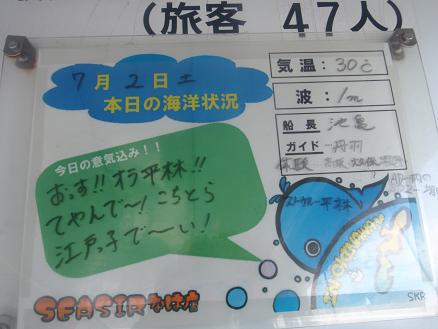 (旅客 47人)
7月2日土
本日の海洋状況
気温:30℃
波:1m
船長 池亀
ガイド 丹羽
体験
今日の意気込み!!
おっす!!オラ平林!!
てやんで〜!こちとら
江戸っ子で〜い!
平林
SEASIRなは店